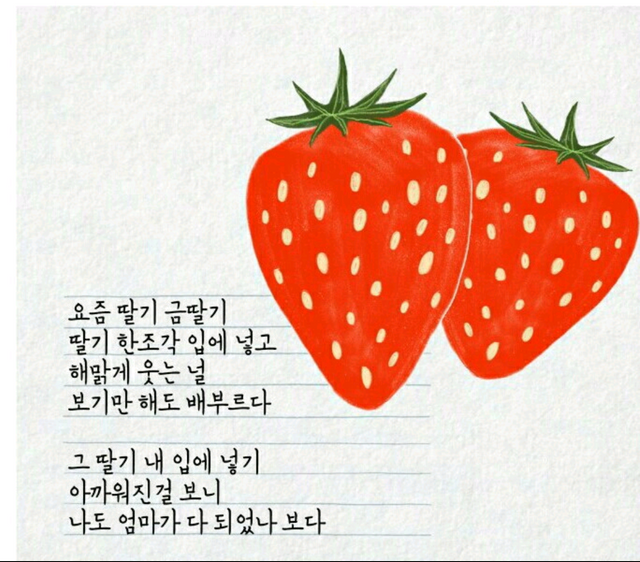 요즘 딸기 금딸기
딸기 한조각 입에 넣고
해맑게 웃는 널
보기만 해도 배부르다
그 딸기 내 입에 넣기
아까워진걸 보니
나도 엄마가 다 되었나 보다